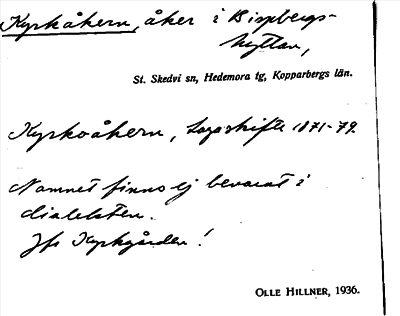 Kyrkåkern, åker i Bispbergs-
hyttan,
St. Skedvi sn, Hedemora tg, Kopparbergs län.
Kyrkoåkern, Lagaskifte 1871-79.
Namnet finns ej bevarat i
dialekten.
Jfr Kyrkgården!
OLLE HILLNER, 1936.